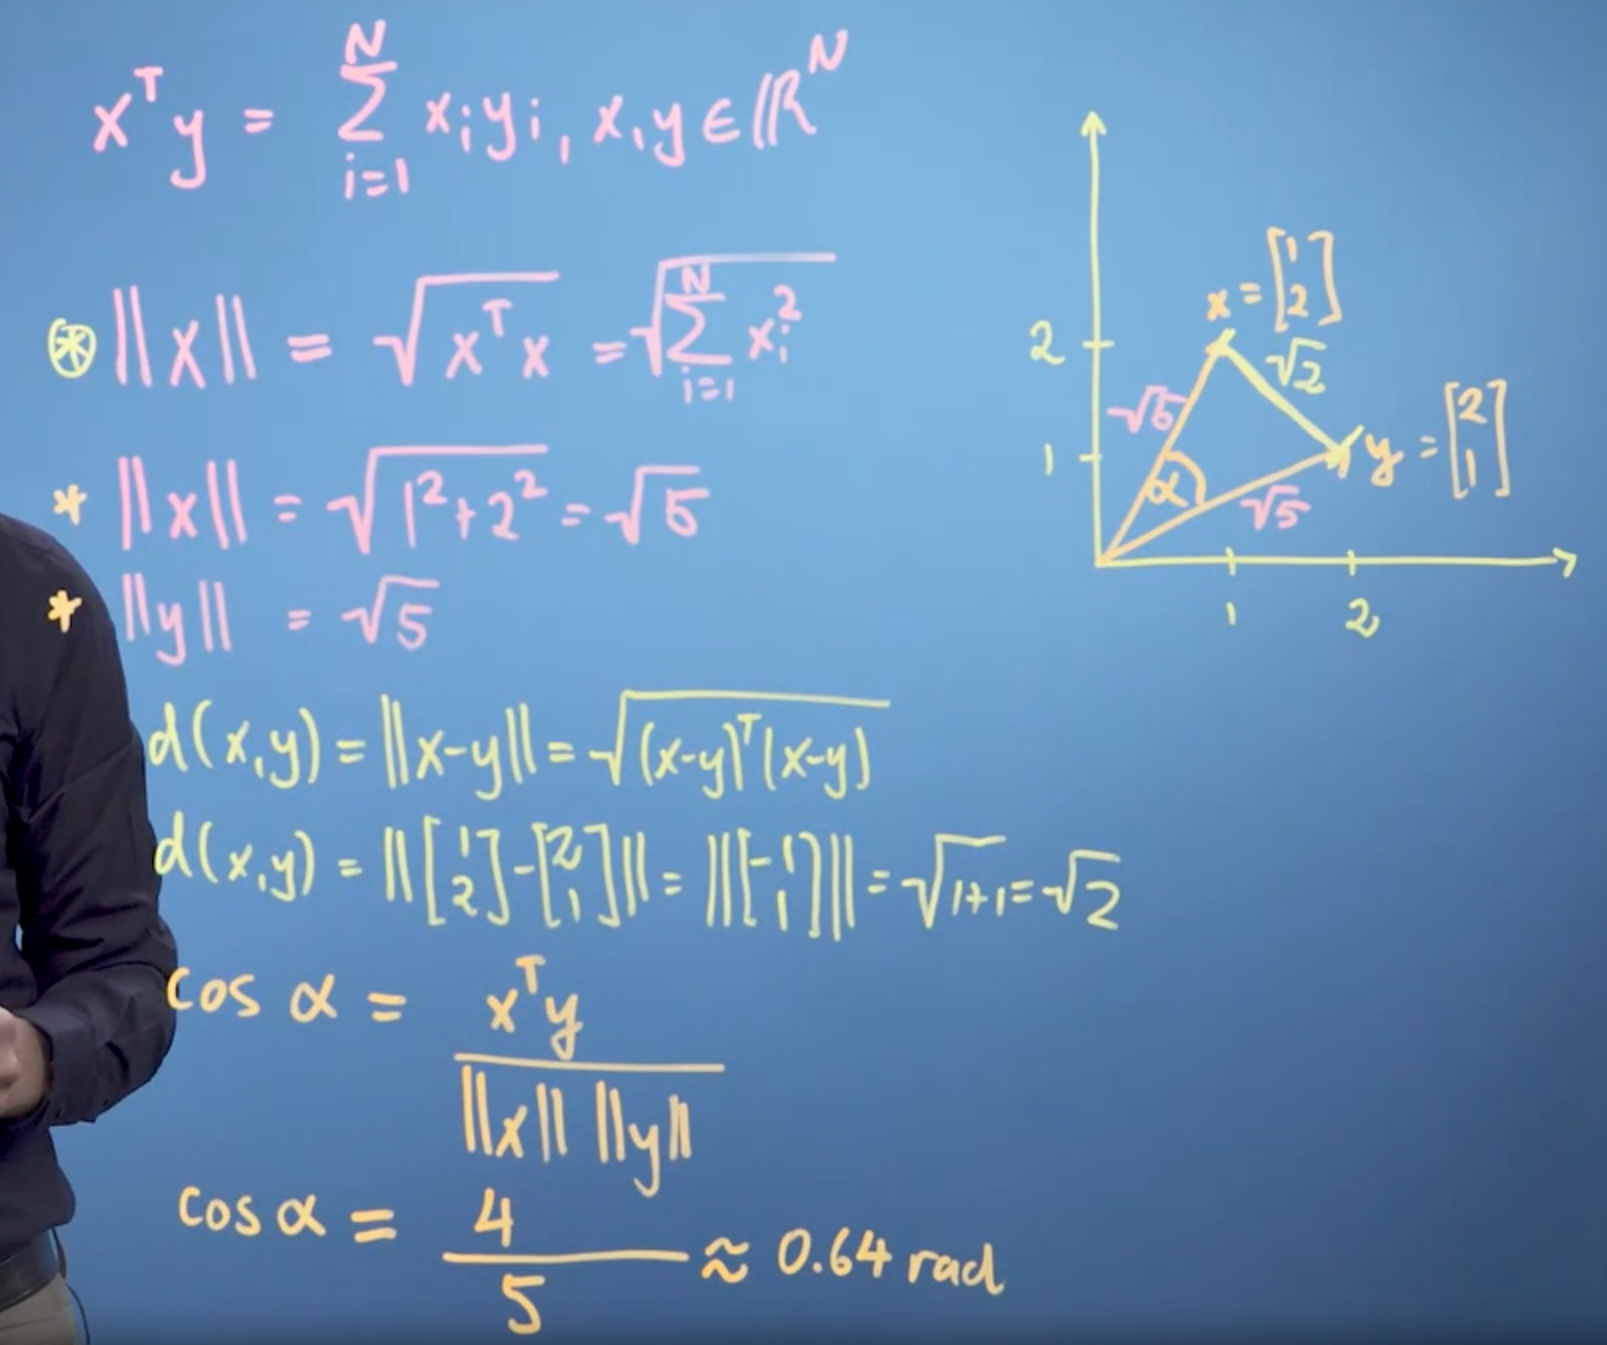 xᵀy = ∑ᵢ₌₁ᴺ xᵢyᵢ, x,y ∈ ℝᴺ
⊛ ||x|| = √(xᵀx) = √(∑ᵢ₌₁ᴺ xᵢ²)
* ||x|| = √(1²+2²) = √5
* ||y|| = √5
d(x,y) = ||x-y|| = √((x-y)ᵀ(x-y))
d(x,y) = ||[1 2] - [2 1]|| = ||[-1 1]|| = √(1+1) = √2
cos α = xᵀy / (||x|| ||y||)
cos α = 4/5 ≈ 0.64 rad
x = [1 2]
2
√2
√5
y = [2 1]
1
α
√5
1 2